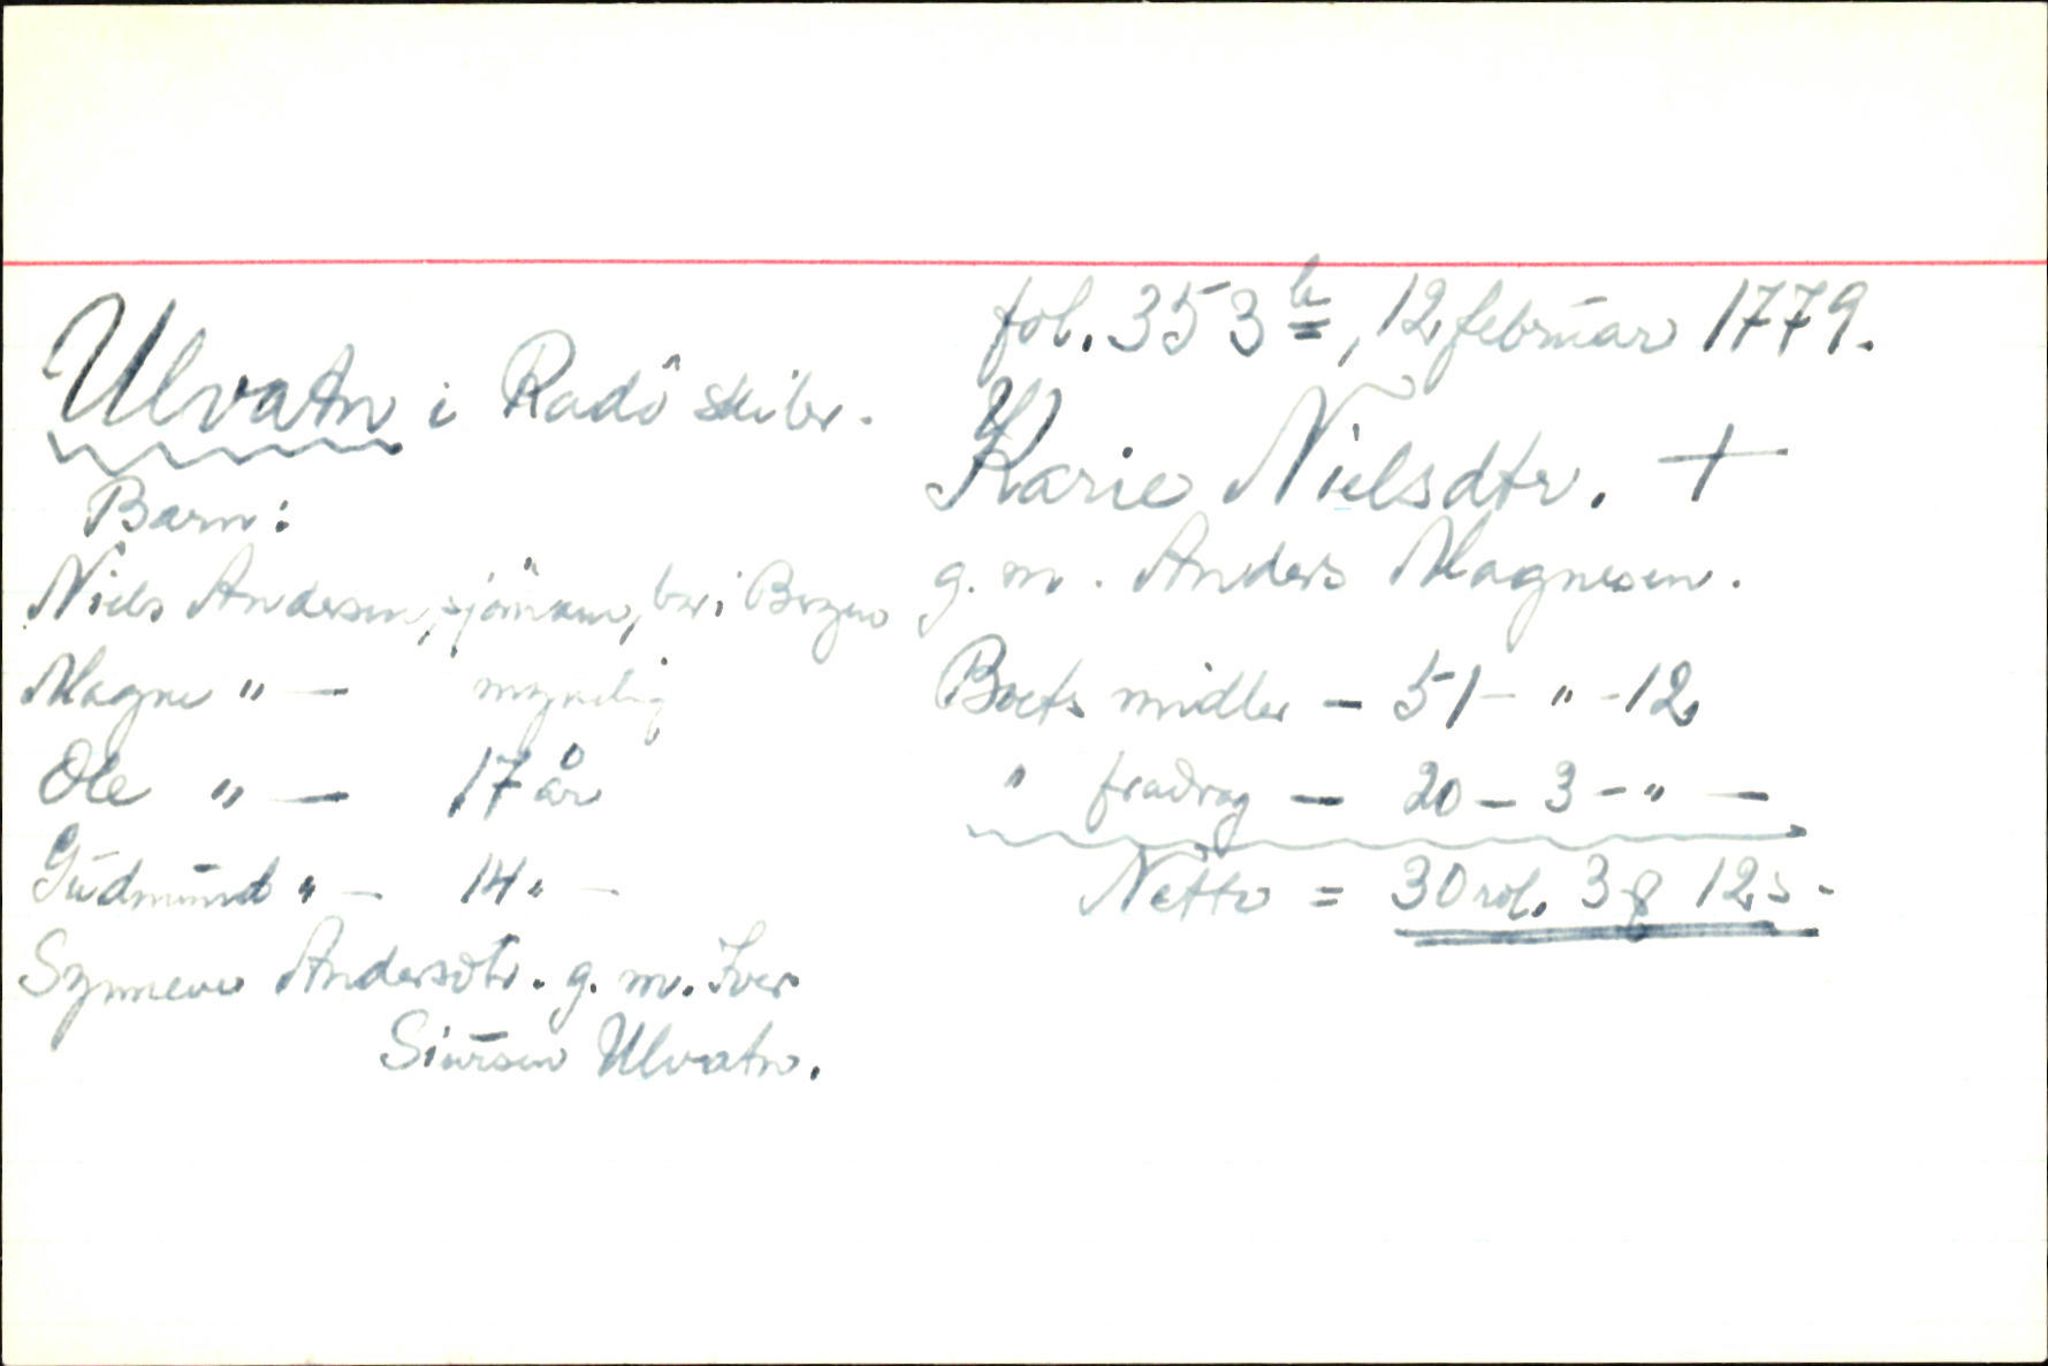 fol. 353 b, 12 februar 1779.
Ulvatn i Radö skibr.
Karie Nielsdtr. +
g. m. Anders Magnesen.
Boets midler - 51 - " - 12
" fradrag - 20 - 3 - " -
Netto = 30 rdl. 3 12 s -
Barn:
Niels Andersen, sjömann, bor i Bergen
Magne " - myndig
Ole " - 17 år
Gudmund " - 14 " -
Synneve Andersdtr. g. m. Iver
Siursen Ulvatn.